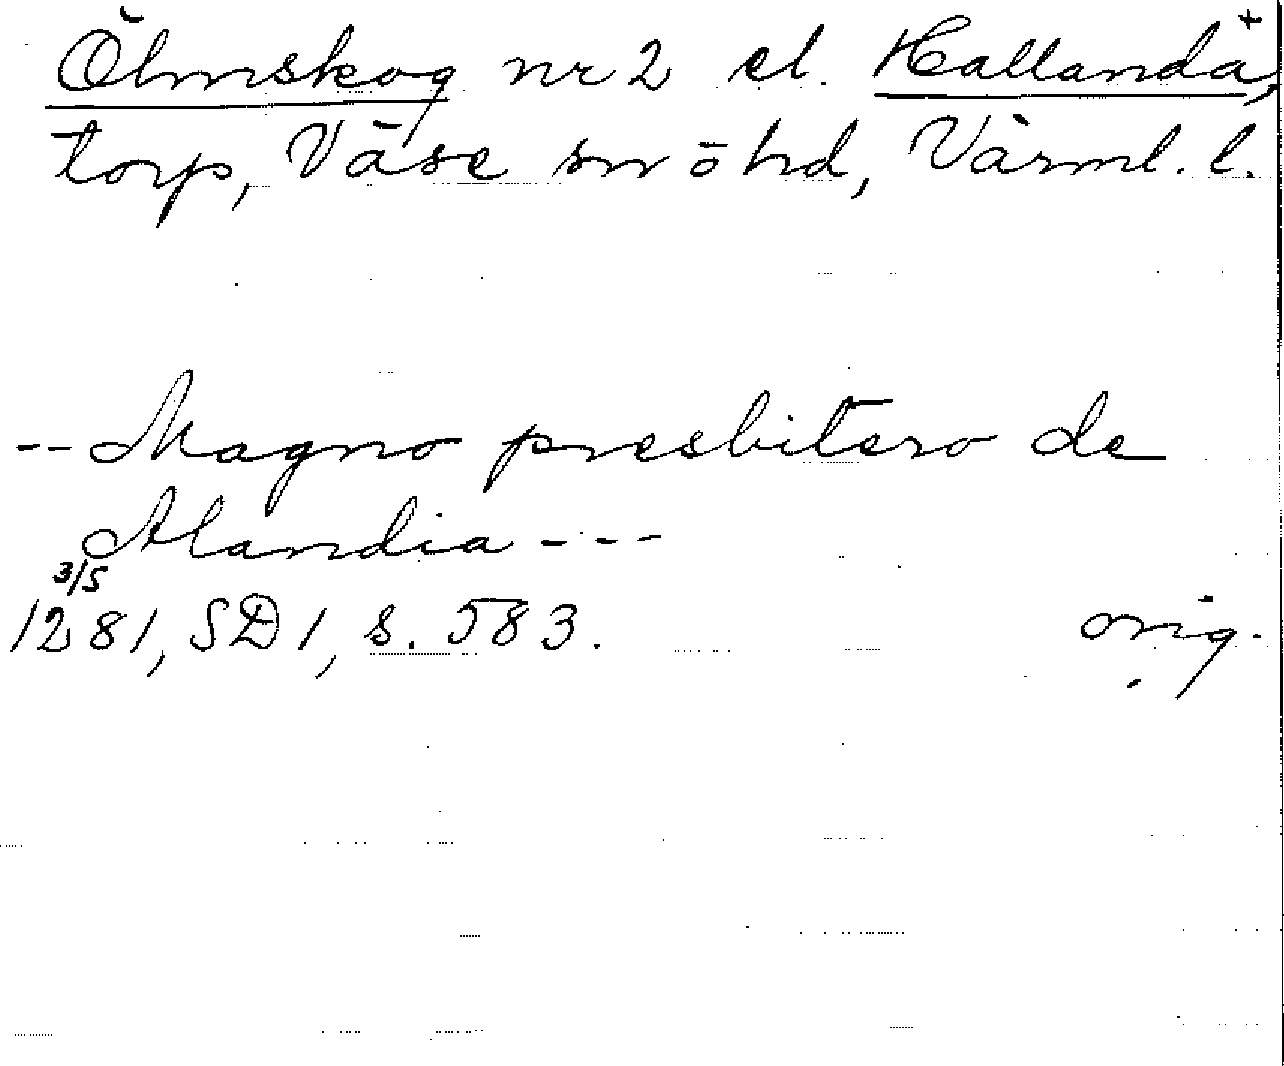 Ölmskog nr 2 el. Hallandä, +
torp, Väse sn ö hd, Värml. l.
-- Magno presbitero de
Alandia ---
3/5
1281, SD 1, s. 583. orig.